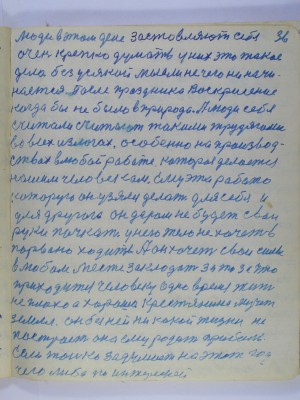 люди в этом деле заставляют себя 36
очен крепко думать у них это такое
дело без усякой мысли нечего начи-
нается. После праздника Воскресение
когда бы не было в природа. Люди себя
считали считают такими трудягами
во всех, особенно на производ-
ствах в любой работе, которая делается
нашим человекам. ему эта работа
которую он узялся делать для себя и
для другого он даром не будет свои
руки пачкать у него тоже не хочеть
порвано ходить. А он хочет свои силы
в любом месте закладать за то за что
приходится человеку одно время жить
неплохо а хорошо крестянина мучит
земля. он бы ней никакой жизни не
она ему родить прибыль
на этот год
чего либо по